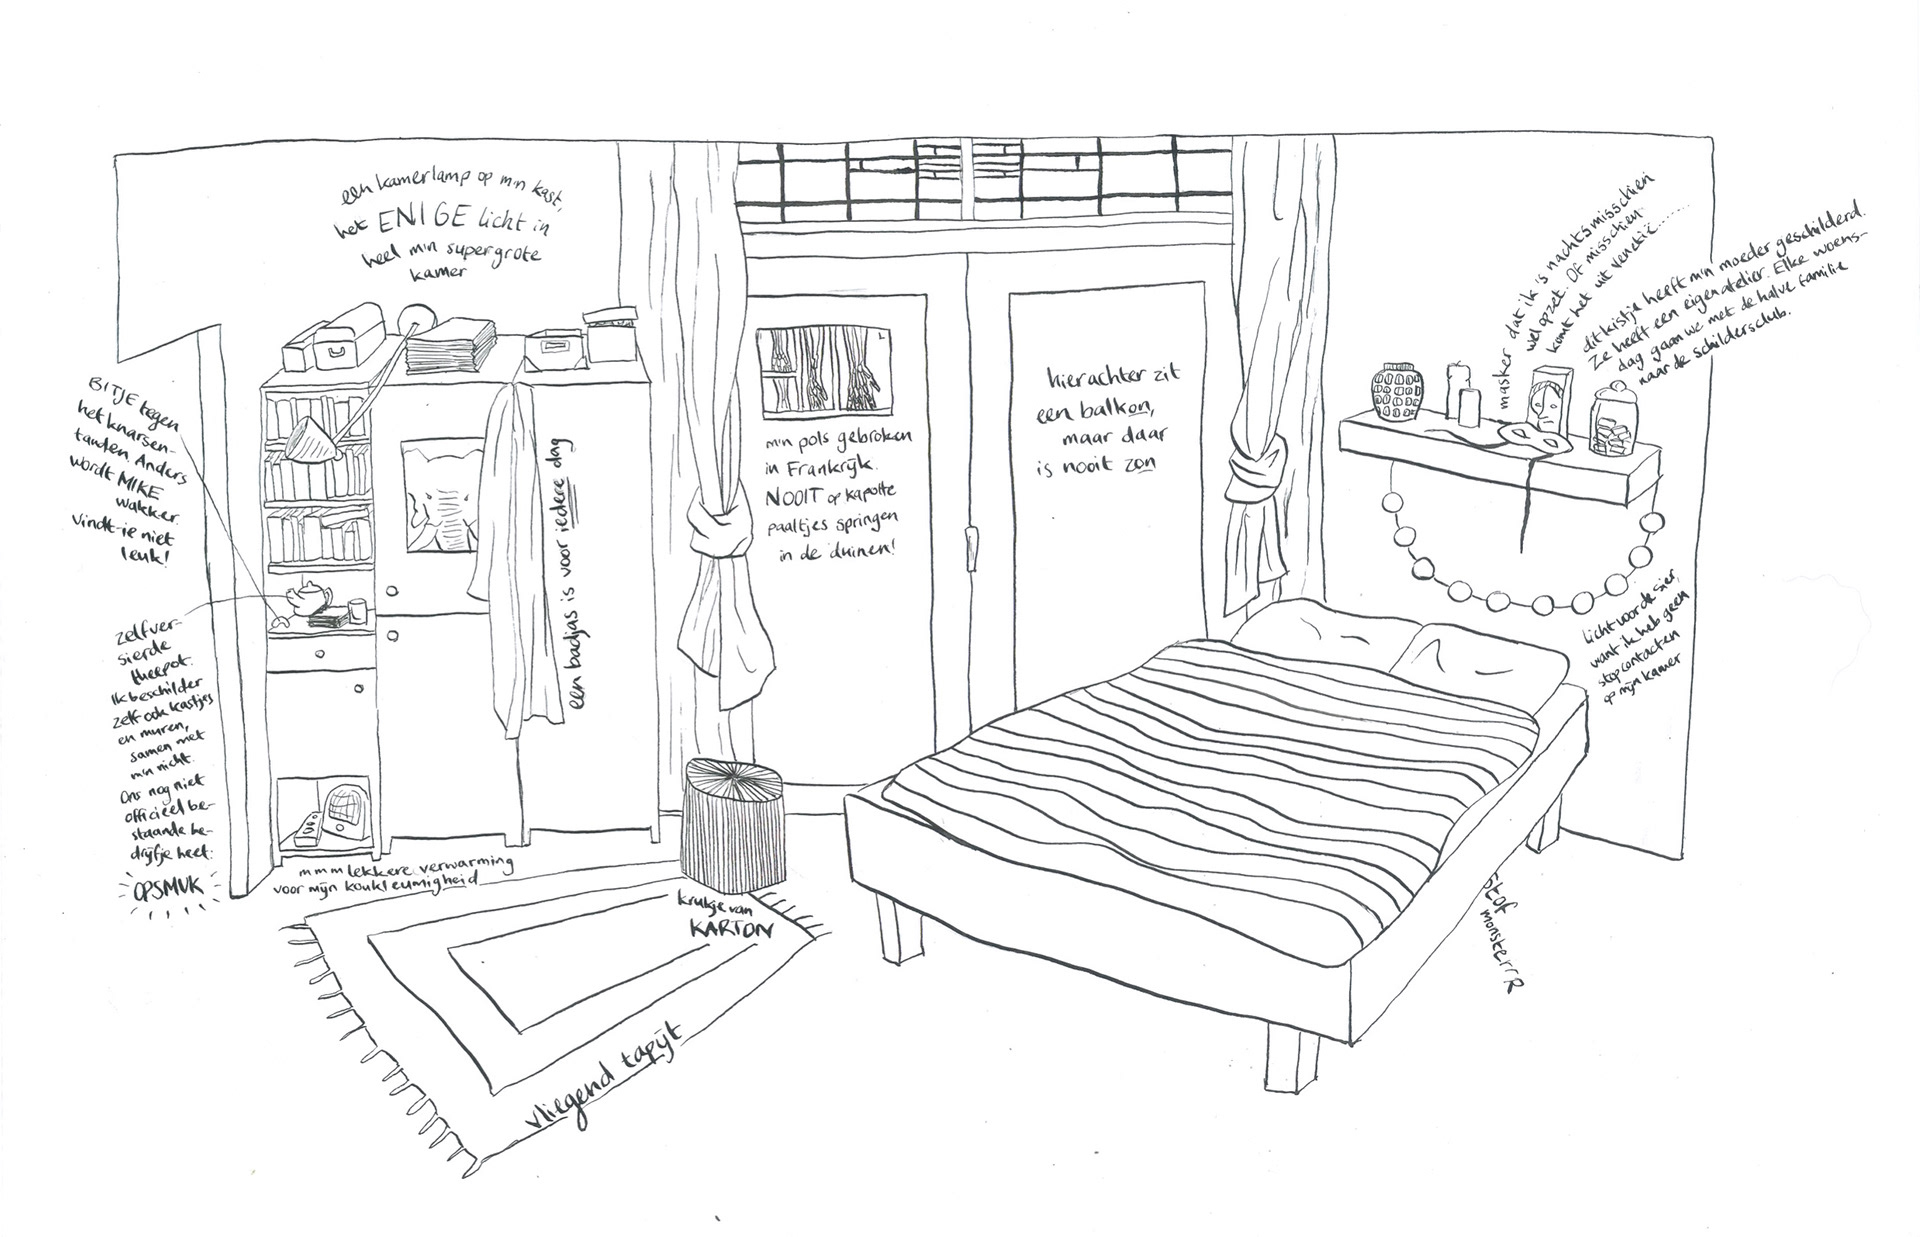 een kamerlamp op m'n kast,
het ENIGE licht in
heel m'n supergrote
kamer
BITJE tegen
het knarsen-
tanden. Anders
wordt MIKE
wakker.
Vindt-ie niet
leuk!
zelfver-
sierde
theepot.
Ik beschilder
zelf ook kastjes
en muren,
samen met
m'n nicht.
Ons nog niet
officieel be-
staande be-
drijfje heet:
OPSMUK
een badjas is voor iedere dag
m'n pols gebroken
in Frankrijk.
NOOIT op kapotte
paaltjes springen
in de duinen!
hierachter zit
een balkon,
maar daar
is nooit zon
masker dat ik 's nachts misschien
wel opzet. Of misschien
komt het uit Venetië.......
dit kistje heeft m'n moeder geschilderd.
Ze heeft een eigen atelier. Elke woens-
dag gaan we met de halve familie
naar de schildersclub.
licht voor de sier,
want ik heb geen
stopcontacten
op mijn kamer
mmm lekkere verwarming
voor mijn koukleumigheid
krukje van
KARTON
vliegend tapijt
stof
monsterrR